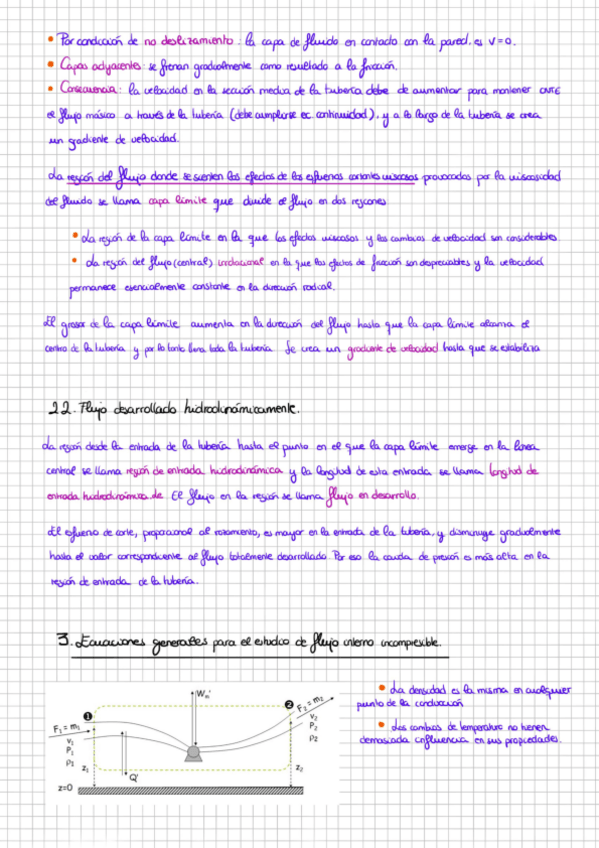 • Por condición de no deslizamiento: la capa de fluido en contacto con la pared. es v=0.
• Capas adyacentes: se frenan gradualmente como resultado a la fricción.
• Consecuencia: la velocidad en la sección media de la tubería debe de aumentar para mantener CNTE
el flujo másico a través de la tubería (debe cumplirse ec. continuidad), y a lo largo de la tubería se crea
un gradiente de velocidad.
La región del flujo donde se sienten los efectos de los esfuerzos cortantes viscosos provocados por la viscosidad
del fluido se llama capa límite que divide el flujo en dos regiones
• La región de la capa límite en la que los efectos viscosos y los cambios de velocidad son considerables
• La región del flujo (central) irrotacional en la que los efectos de fricción son despreciables y la velocidad
permanece esencialmente constante en la dirección radial.
El grosor de la capa límite aumenta en la dirección del flujo hasta que la capa límite alcanza el
centro de la tubería y por lo tanto llena toda la tubería Se crea un gradiente de velocidad hasta que se estabiliza
2.2. Flujo desarrollado hidrodinámicamente.
La región desde la entrada de la tubería hasta el punto en el que la capa límite emerge en la línea
central se llama región de entrada hidrodinámica y la longitud de esta entrada se llama longitud de
entrada hidrodinámica. El flujo en la región se llama flujo en desarrollo.
El esfuerzo de corte, proporcional al rozamiento, es mayor en la entrada de la tubería, y disminuye gradualmente
hasta el valor correspondiente al flujo totalmente desarrollado. Por eso la caída de presión es más alta en la
región de entrada de la tubería.
3. Ecuaciones generales para el estudio de flujo interno incompresible.
• La densidad es la misma en cualquier
punto de la conducción
• Los cambios de temperatura no tienen
demasiada influencia en sus propiedades.
Wm'
1
2
F1 = m1
v1
P1
ρ1
z1
Q'
F2 = m2
v2
P2
ρ2
z2
z=0